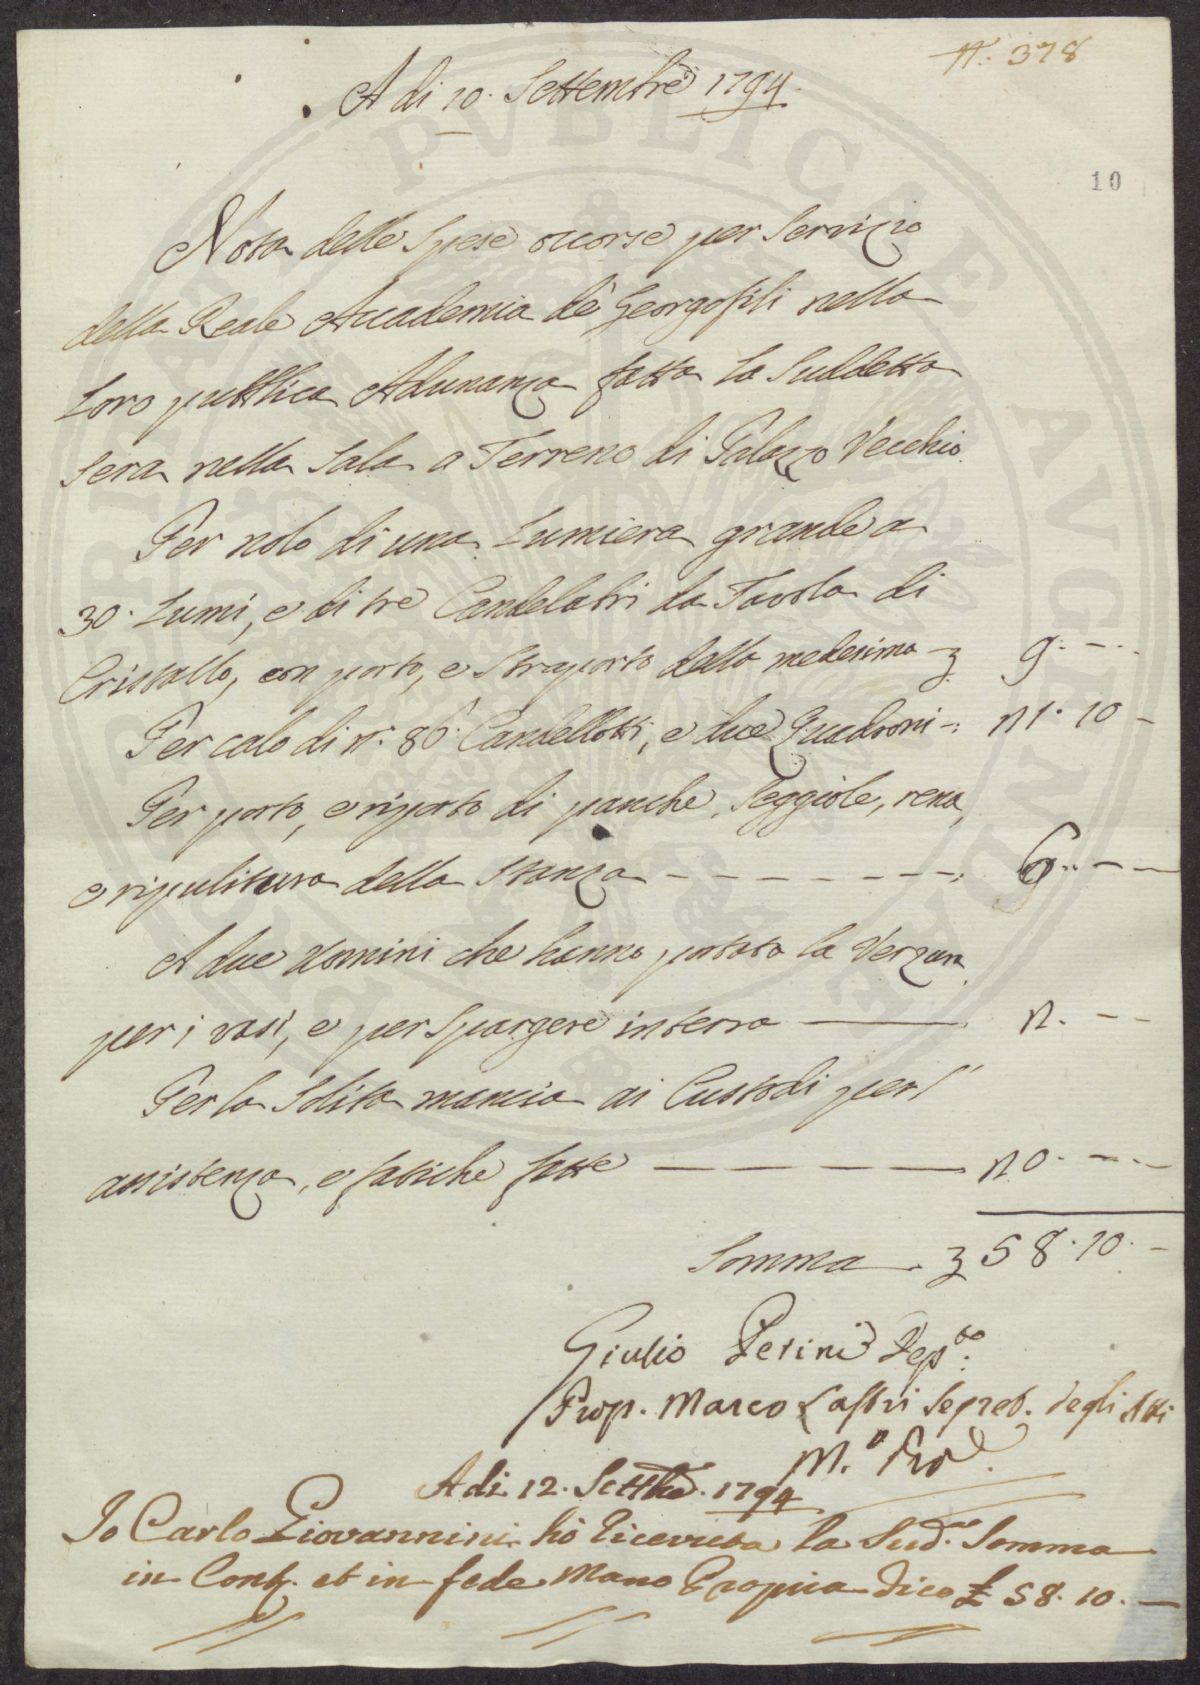 N: 378
A di 10. Settembre 1794.
10
Nota delle Spese occorse per Servizio
della Reale Accademia de' Georgofili nella
Loro pubblica Adunanza fatta la Suddetta
Sera nella Sala a Terreno di Palazzo Vecchio
Per nolo di una Lumiera grande a
30. Lumi, e di tre Candelabri da Tavola di
Cristallo, con porto, e Straporto della medesima £ 9. - -
Per calo di n. 86. Candellotti, e due Quadroni -: 21. 10 -
Per porto, e riporto di panche, Seggiole, rena,
e ripulitura della Stanza - - - - - - - -: 6. - -
A due Uomini che hanno portato la Verzura
per i vasi, e per Spargere in terra —— 2. - -
Per la Solita mancia ai Custodi per l'
assistenza, e fatiche fatte — — — — 20. - -
Somma £ 58. 10. -
Giulio Perini Dep.to
Prop. Marco Lastri Segret. degli Atti
M.o Pro
A di 12. Settbe. 1794
Io Carlo Giovannini ho Ricevuta la Sud.a Somma
in Cont. et in fede Mano Propria dico £ 58. 10. —
PROSPERITATI PVBLICAE AVGENDAE